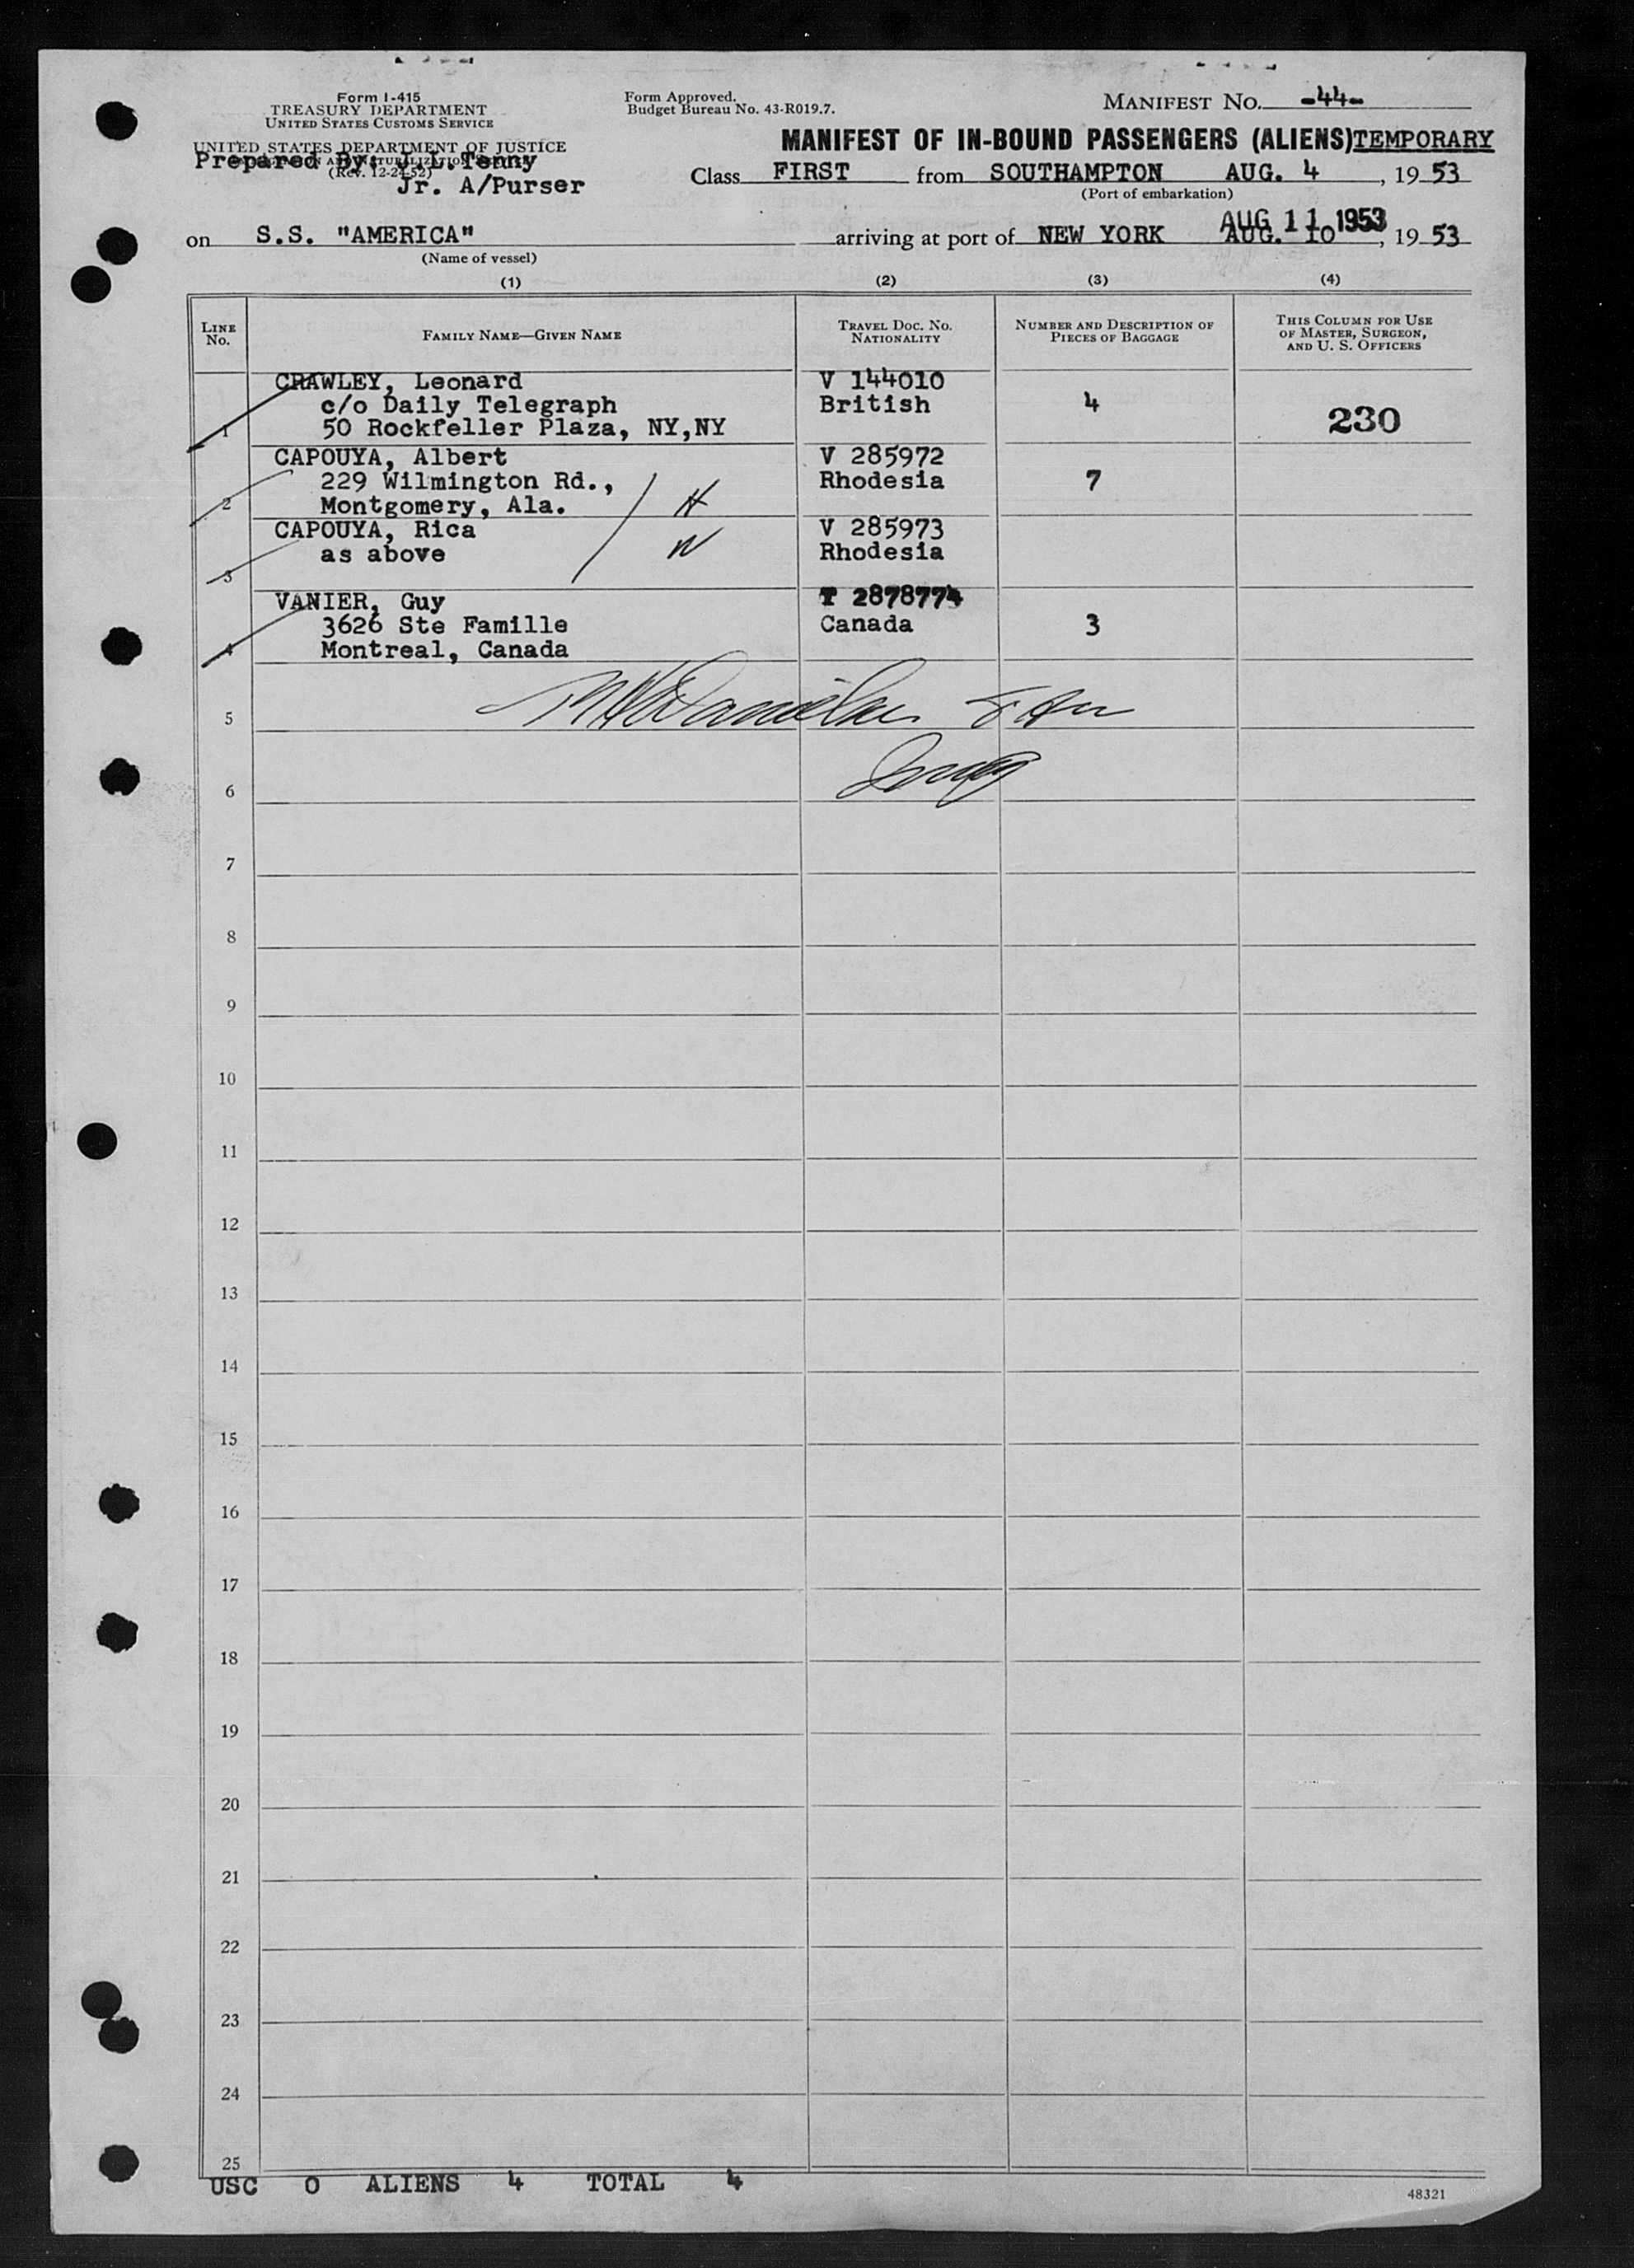 Form I-415
TREASURY DEPARTMENT
UNITED STATES CUSTOMS SERVICE
UNITED STATES DEPARTMENT OF JUSTICE
(Rev. 12-24-52)
Prepared By: J.L.Tenny
Jr. A/Purser
Form Approved.
Budget Bureau No. 43-R019.7.
MANIFEST NO. -44-
MANIFEST OF IN-BOUND PASSENGERS (ALIENS) TEMPORARY
Class FIRST from SOUTHAMPTON AUG. 4, 1953
(Port of embarkation)
AUG 11 1953
on S.S. "AMERICA" arriving at port of NEW YORK AUG. 10, 1953
(Name of vessel)
(1) (2) (3) (4)
LINE NO. FAMILY NAME—GIVEN NAME TRAVEL DOC. NO. NATIONALITY NUMBER AND DESCRIPTION OF PIECES OF BAGGAGE THIS COLUMN FOR USE OF MASTER, SURGEON, AND U. S. OFFICERS
CRAWLEY, Leonard V 144010
c/o Daily Telegraph British 4 230
1 50 Rockfeller Plaza, NY,NY
CAPOUYA, Albert V 285972
229 Wilmington Rd., Rhodesia 7
2 Montgomery, Ala. H
CAPOUYA, Rica V 285973
as above W Rhodesia
3
VANIER, Guy T 2878774
3626 Ste Famille Canada 3
4 Montreal, Canada
5
6
7
8
9
10
11
12
13
14
15
16
17
18
19
20
21
22
23
24
25
USC 0 ALIENS 4 TOTAL 4
48321